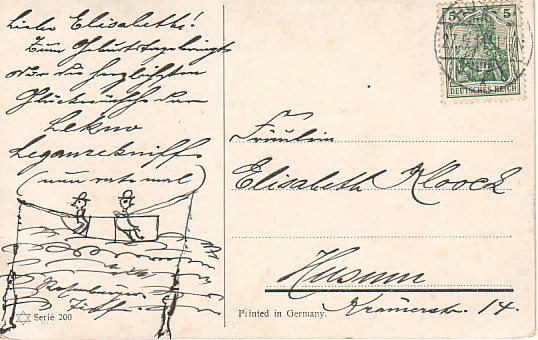 Liebe Elisabeth!
Zum Geburtstage bringt
Dir die herzlichsten
Glückwünsche der
Lekno
Leganzekniff
(nun rate mal)
Serie 200
5 5
DEUTSCHES REICH
Fräulein
Elisabeth Kloock
Husum
Krämerstr. 14.
Printed in Germany.